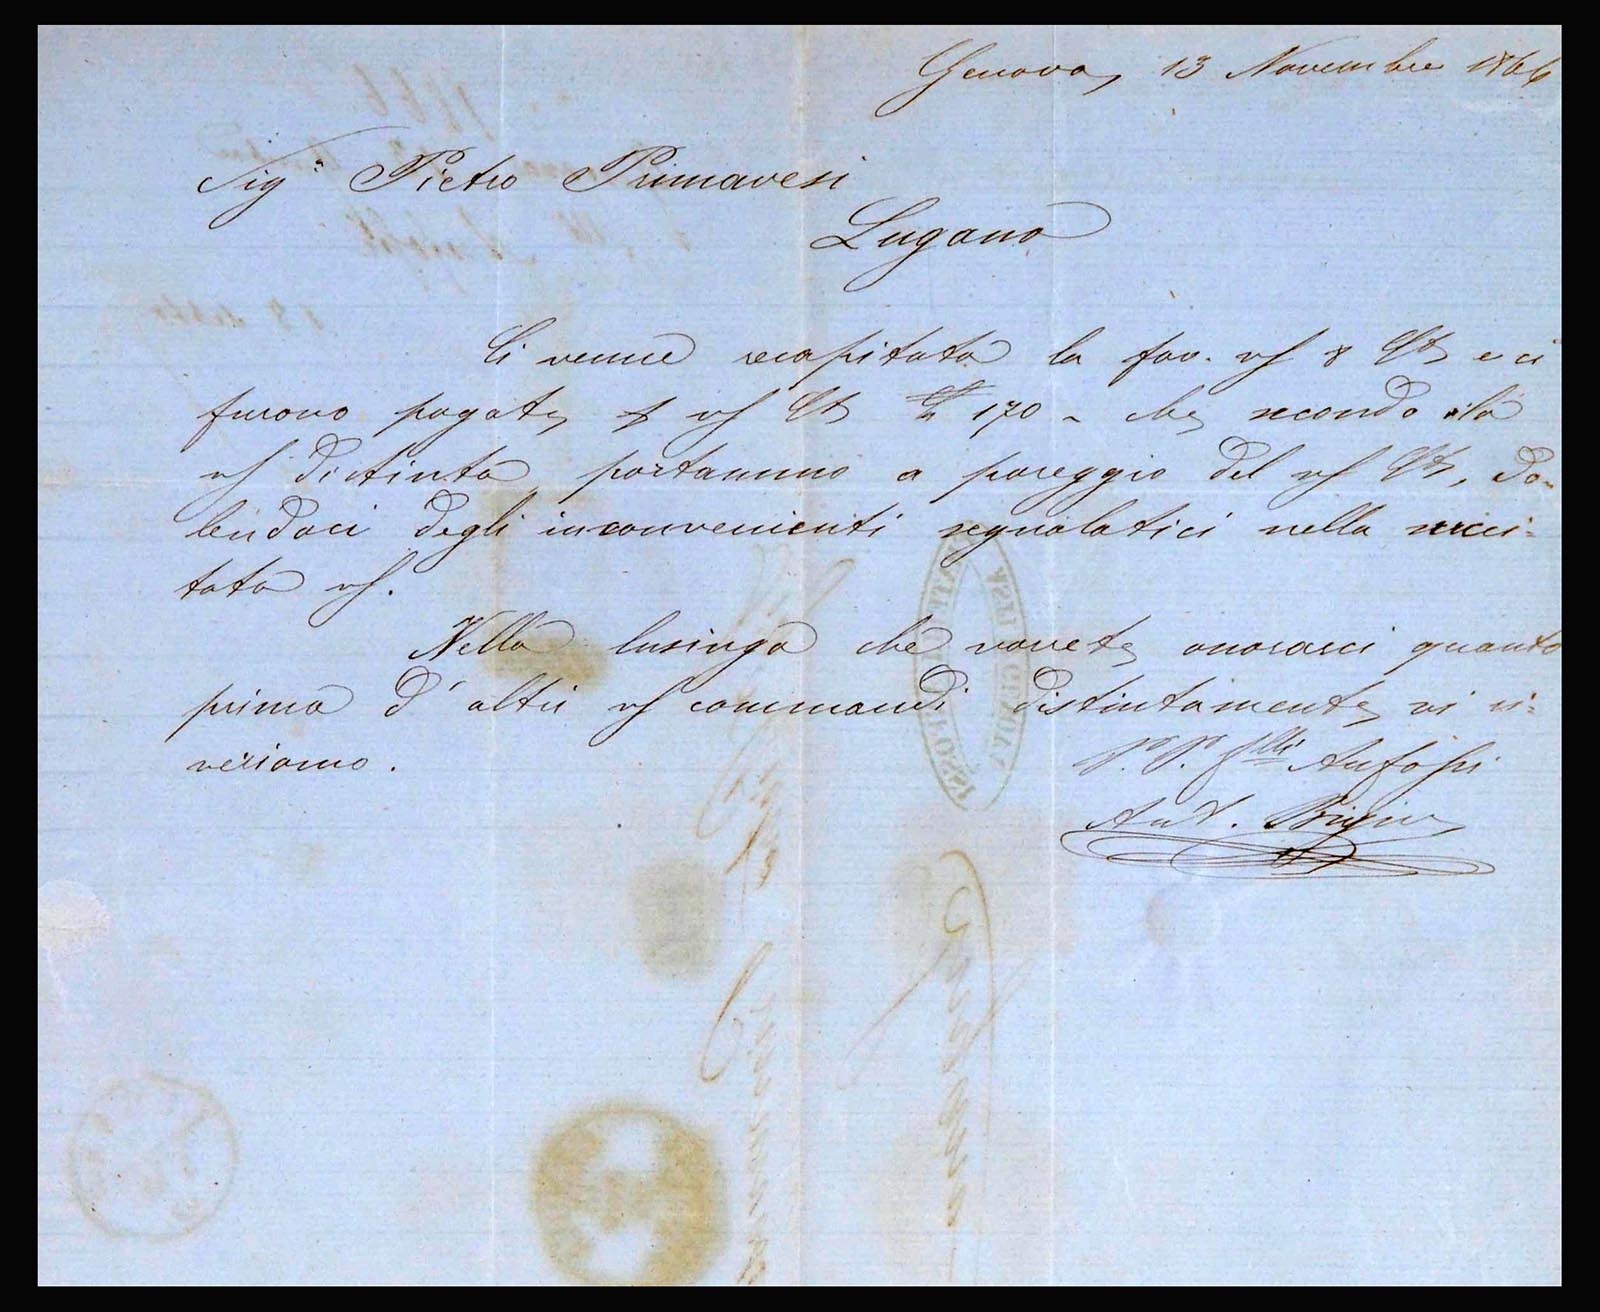 Genova, 13 Novembre 1866
Sigr Pietro Primavesi
Lugano
Ci venne recapitata la fav. vs 8 Ct e ci
furono pagate vs Ct 170 - che secondo la
vs distinta portammo a pareggio del vs Ct, do-
lendoci degli inconvenienti segnalatici nella succi-
tata vs.
Nella lusinga che vorrete onorarci quanto
prima d'altri vs commandi distintamente vi ri-
veriamo.
P. P. flli Anfossi
Ant.